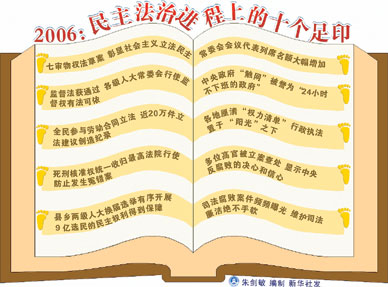 2006:民主法治进程上的十个足印
七审物权法草案 彰显社会主义立法民主
监督法获通过 各级人大常委会行使监
督权有法可依
全民参与劳动合同立法 近20万件立
法建议创造纪录
死刑核准权统一收归最高法院行使
防止发生冤错案
县乡两级人大换届选举有序开展
9亿选民的民主权利得到保障
常委会会议代表列席名额大幅增加
中央政府“触网”被誉为“24小时
不下班的政府”
各地厘清“权力清单”行政执法
置于“阳光”之下
多位高官被立案查处 显示中央
反腐败的决心和信心
司法腐败案件频频曝光 维护司法
廉洁绝不手软
朱剑敏 编制 新华社发